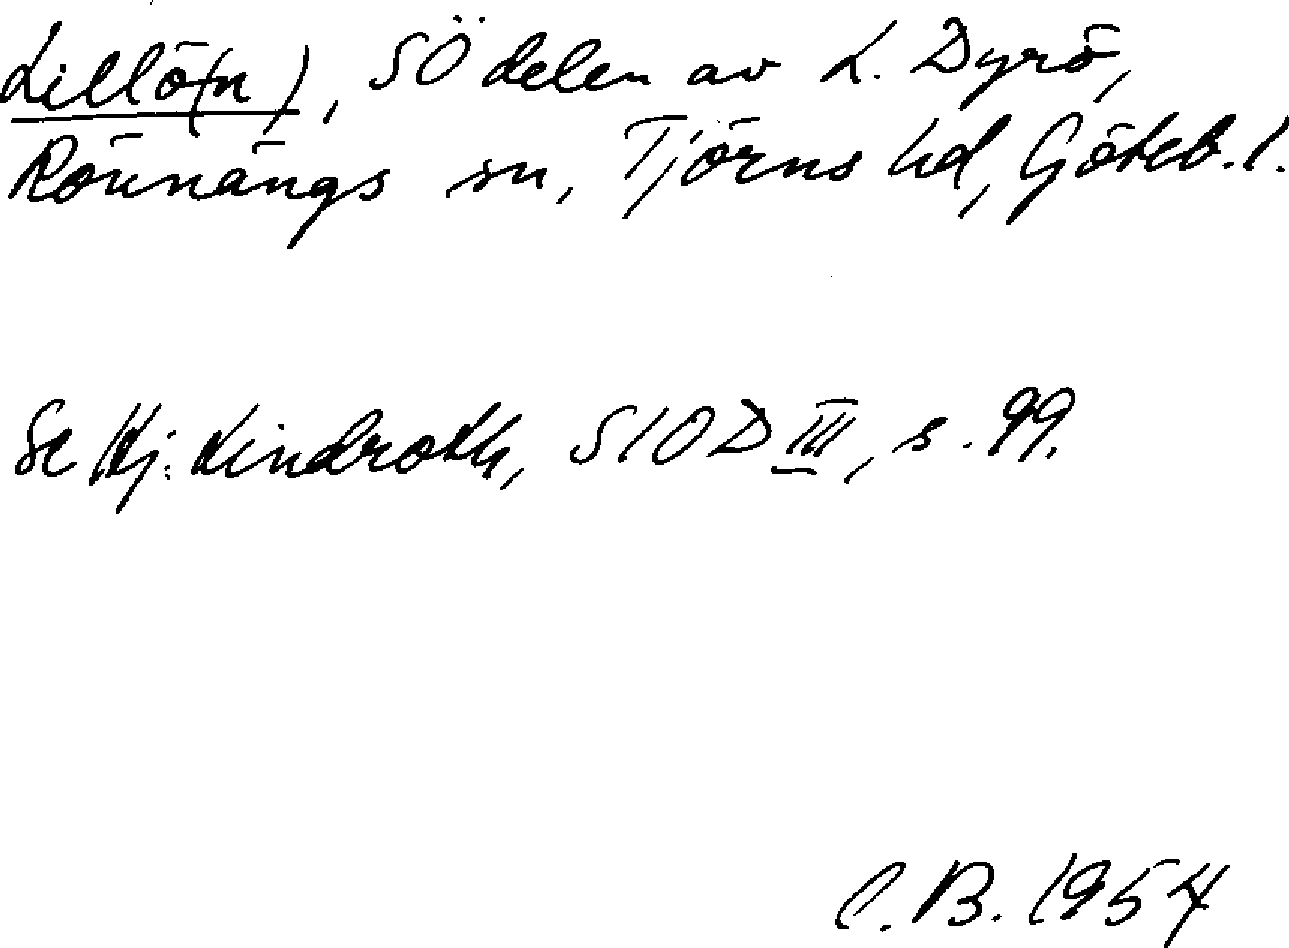 Lillö(n), SÖ delen av L. Dyrö,
Rönnängs sn, Tjörns hd, Göteb. l.
Se Hj. Lindroth, SIOD III, s. 99.
C. B. 1954